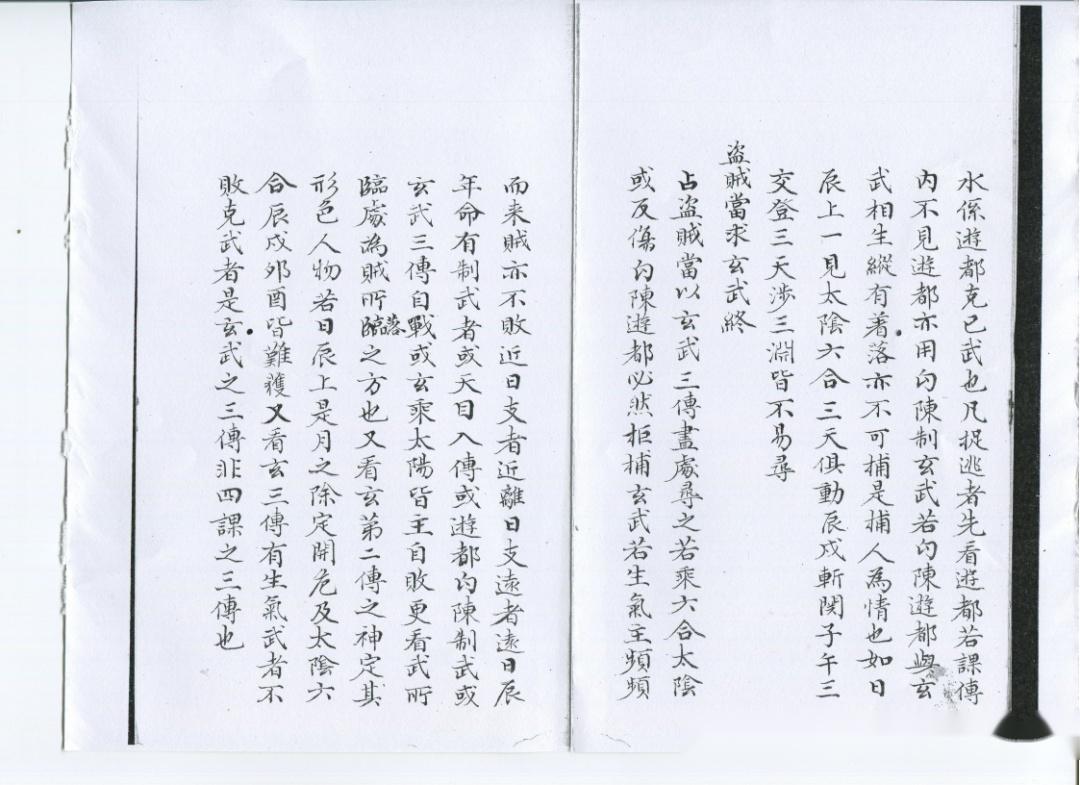 水係遊都克已武也凡捉逃者先看遊都若課傳
内不見遊都亦用勾陳制玄武若勾陳遊都與玄
武相生縱有著落亦不可捕是捕人為情也如日
辰上一見太陰六合三天俱動辰戍斬関子午三
交登三天涉三淵皆不易尋
盗賊當求玄武終
占盗賊當以玄武三傳盡處尋之若乘六合太陰
或反傷勾陳遊都必然拒捕玄武若生氣主頻頻
而来賊亦不敗近日支者近離日支遠者遠日辰
年命有制武者或天目入傳或遊都勾陳制武或
玄武三傳自戰或玄乘太陽皆主自敗更看武所
臨處為賊所臨落之方也又看玄第二傳之神定其
形色人物若日辰上是月之除定開危及太陰六
合辰戍夘酉皆難獲又看玄三傳有生氣武者不
敗克武者是玄武之三傳非四課之三傳也